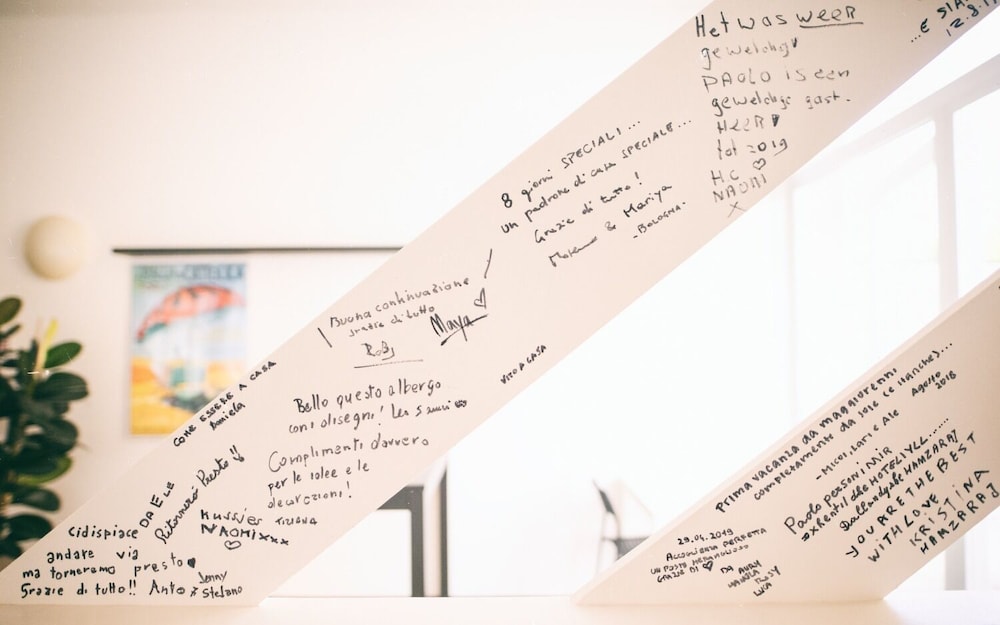 Het was WEER
geweldig
PAOLO is een
geweldige gast.
HEER
tot 2019
H.C
NAOMI
X
...E
12.8.
8 giorni SPECIALI...
un padrone di casa SPECIALE...
Grazie di tutto!
& Mariya
-BOLOGNA-
Buona continuazione
grazie di tutto
Maya
Roby
VITO A CASA
COME ESSERE A CASA
Daniela
Bello questo albergo
con i disegni! Leo 5 anni
Complimenti davvero
per le idee e le
decorazioni!
TIZIANA
DA E LE
Ritornerò Presto!!
Kussjes
NAOMI xxx
Ci dispiace
andare via
ma torneremo presto
Grazie di tutto!! Anto Jenny
& Stefano
Prima vacanza da maggiorenni
completamente da sole (e stanche)...
Ale Agosto
2018
29.04.2019
ACCOGLIENZA PERFETTA
UN POSTO MERAVIGLIOSO
GRAZIE DI
DA
LUCA
Paolo
HOTEL
YOU ARE THE BEST
WITH LOVE
KRISTINA
HAMZARAJ